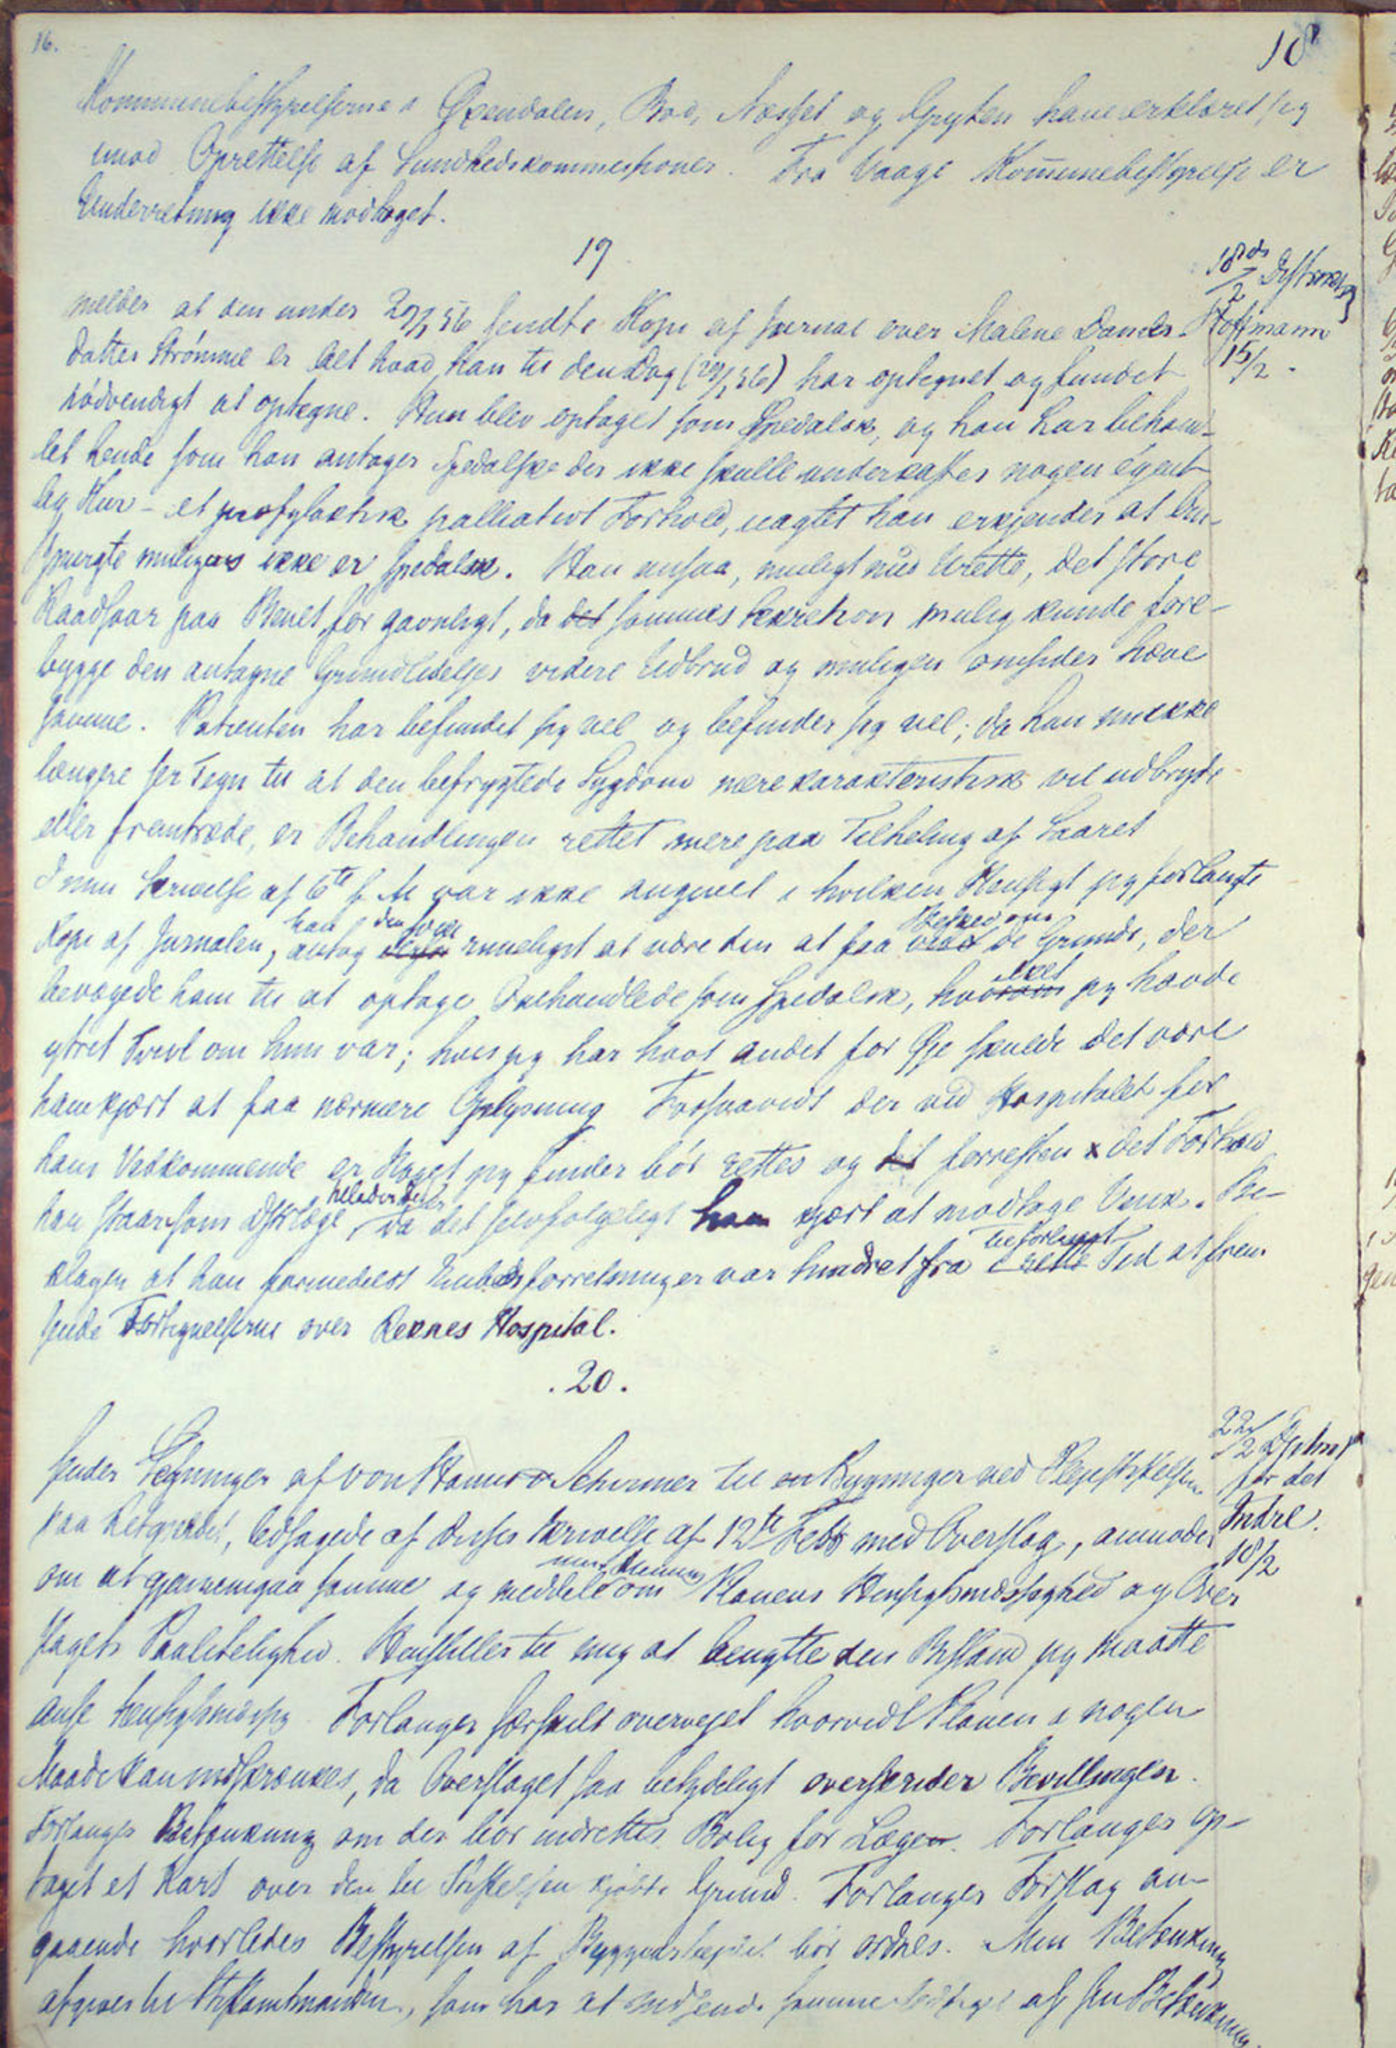 16.
18
Kommunebestyrelserne i Øxendalen, Bod, Nesset og Gryten have erklæret sig
imod Oprettelse af Sundhedskommissioner. Fra Vaage Kom̄unebestyrelse er
Underretning ikke modtaget.
19
18de/2 Distriktslæge
Hoffmann
15/2.
melder at den under 29/1 56 sendte Kopi af Jurnal over Malene Daniels-
datter Strömme er alt hvad han til den Dag (29/1 56) har optegnet og fundet
nödvendigt at optegne. Hun blev optaget som Spedalsk, og han har behand-
let hende som han antager Spedalske der ikke skulle underkastes nogen egent-
lig Kur - et profylaktisk palliativt Forhold, uagtet han erkjender at An-
spurgte muligens ikke er spedalsk. Han ansaa, muligt med Urette, det store
Kaadsaar paa Benet for gavnligt, da det sammes Sekretion mulig kunde fore-
bygge den antagne Grundlidelses videre Udbrud og muligen omsider hæve
samme. Patienten har befundet sig vel og befinder sig vel; da han nu ikke
længere ser Tegn til at den befrygtede Sygdom mere karakteristisk vil udbryde
eller fremtræde, er Behandlingen rettet mere paa Tilheling af Saaret
I min Skrivelse af 6te f. M. var ikke angivet i hvilken Hensigt jeg forlangte
Kopi af Jurnalen, han antog den som rimeligst at være den at faa Besked om de Grunde, der
bevægede ham til at optage Omhandlede som Spedalsk, hvilket jeg havde
ytret Tvivl om hun var; hvis jeg har havt andet for Øje skulde det være
ham kjært at faa nærmere Oplysning Forsaavidt der ved Hospitalet for
hans Vedkommende er Noget jeg finder bör rettes og det forresten x det Forhold
han staar som Dstrlæge, da det selvfølgeligt ham kjært at modtage Vink. Be-
klager at han formedelst Embedsforretninger var hindret fra i rette Tid at frem
sende Fortegnelserne over Reknes Hospital.
.20.
22/2 Dptmt
for det
Indre.
18/2
sender Tegninger af von Hanno & Schirmer til en Bygninger ved Plejestiftelsen
paa Reitgjerdet, ledsagede af disses Skrivelse af 12te Febr med Overslag, anmoder
om at gjennemgaa samme og meddele min Mening om Planens Hensigtsmæssighed og Over
slagets Paalidelighed. Henstilles til mig at benytte den Bistand jeg maatte
anse hensigtsmæssig Forlanger særskilt overvejet hvorvidt Planen i nogen
Maade kan indskrænkes, da Overslaget saa betydeligt overskrider Bevillingen.
Forlanger Betænkning om der bör indrettes Bolig for Lægen. Forlanges op-
taget et Kart over den til Stiftelsen kjöbte Grund. Forlanges Forslag an-
gaaende hvorledes Bestyrelsen af Byggearbejdet bör ordnes. Min Betænkning
afgives til Stiftamtmanden, som har at indsende samme ledsaget af sin Betænkning.